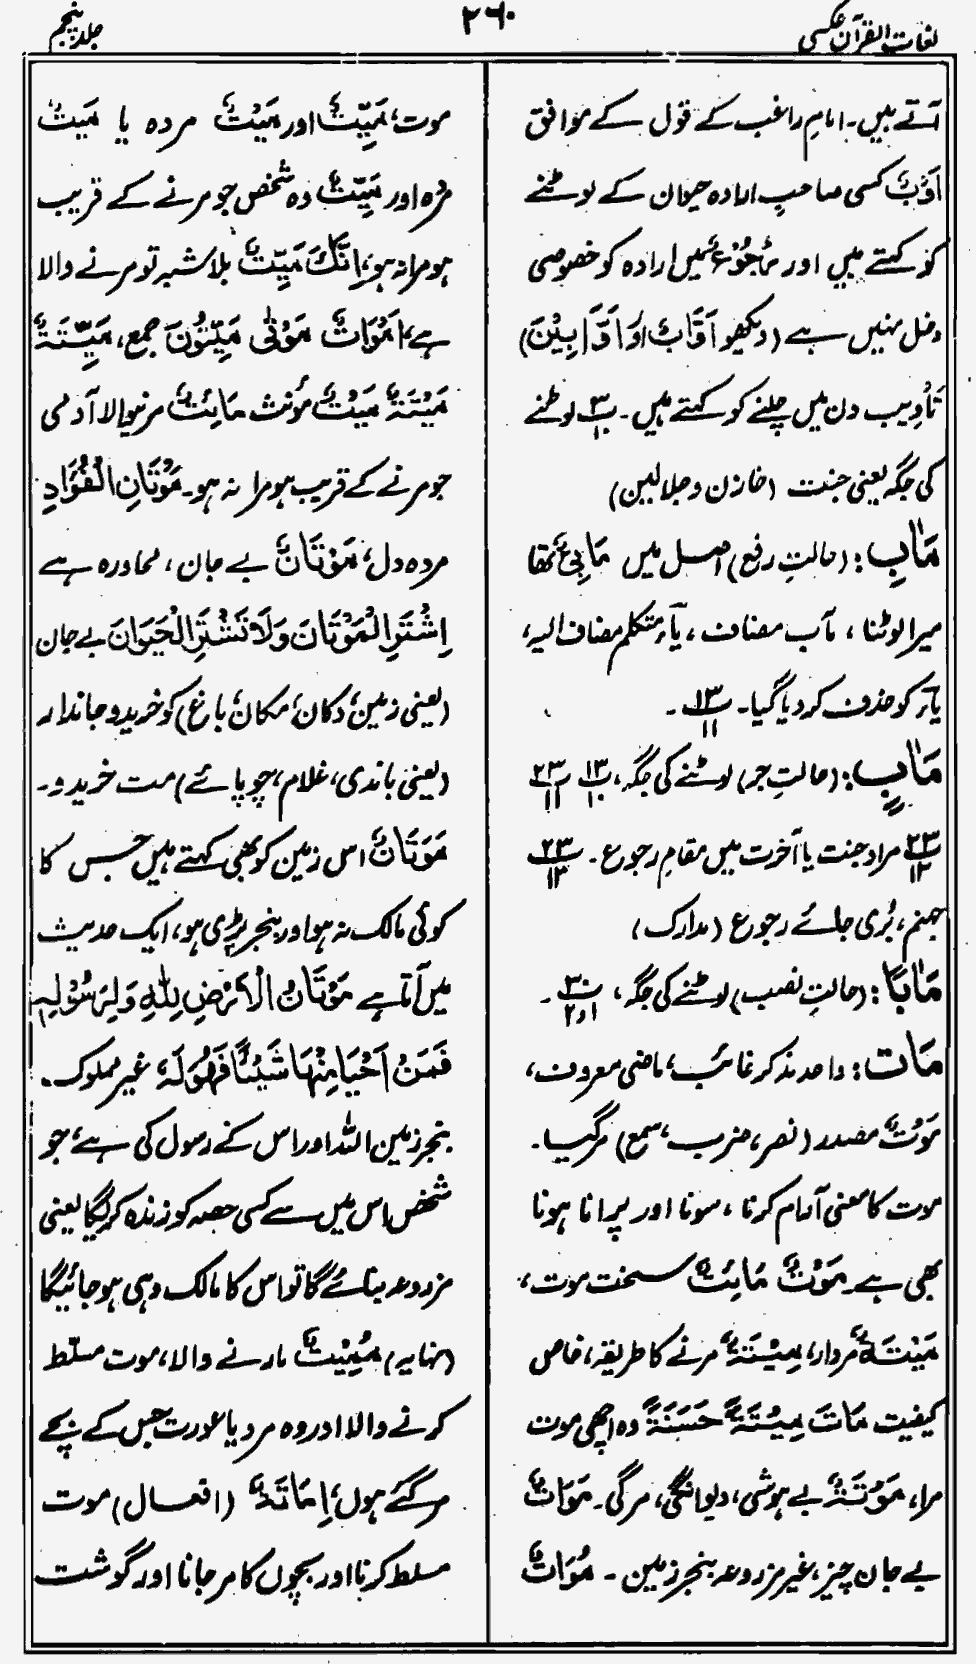 لغات القرآن عکسی
۲۶۰
جلد پنجم
آتے ہیں۔ امام راغب کے قول کے موافق
اَوْبٌ کسی صاحبِ ارادہ حیوان کے لوٹنے
کو کہتے ہیں اور رُجُوْعٌ میں ارادہ کو خصوصی
دخل نہیں ہے (دیکھو اَوَّابٌ اور اَوَّابِیْنَ)
تَأْوِیب دن میں چلنے کو کہتے ہیں۔ لوٹنے
کی جگہ یعنی جنت (خازن و جلالین)
مَاٰبِ: (حالتِ رفع) اصل میں مَاٰبِیْ تھا
میرا لوٹنا، مآب مضاف، یآء متکلم مضاف الیہ،
یآء کو حذف کر دیا گیا۔ ۱۳/۱۱۔
مَاٰبٍ: (حالتِ جر) لوٹنے کی جگہ، ۱۳/۱۰ ۲۳/۱۱
۲۳/۱۲ مراد جنت یا آخرت میں مقامِ رجوع۔ ۲۳/۱۳
جہنم، بُری جائے رجوع (مدارک)
مَاٰبًا: (حالتِ نصب) لوٹنے کی جگہ، ۳۰/۱و۲۔
مَاتَ: واحد مذکر غائب، ماضی معروف،
مَوْتٌ مصدر (نصر، ضرب، سمع) مر گیا۔
موت کا معنی آرام کرنا، سونا اور پرانا ہونا
بھی ہے۔ مَوْتٌ مَائِتٌ سخت موت،
مَیْتَةٌ مردار، مِیْتَةٌ مرنے کا طریقہ، خاص
کیفیت مَاتَ مِیْتَةً حَسَنَةً وہ اچھی موت
مرا، مَوْتَةٌ بے ہوشی، دیوانگی، مرگی۔ مَوَاتٌ
بے جان چیز، غیر مزروعہ بنجر زمین۔ مُوَاتٌ
موت، مَیِّتٌ اور مَیْتٌ مردہ یا مَیْتٌ
مردہ اور مَیِّتٌ وہ شخص جو مرنے کے قریب
ہو مرا نہ ہو، اِنَّكَ مَیِّتٌ بلا شبہ تو مرنے والا
ہے، اَمْوَاتٌ مَوْتٰی مَیِّتُوْنَ جمع، مَیِّتَةٌ
مَیْتَةٌ مَیْتٌ مؤنث مَائِتٌ مرنیوالا آدمی
جو مرنے کے قریب ہو مرا نہ ہو۔ مَوْتَانِ الْفُؤَادِ
مردہ دل، مَوْتَانٌ بے جان، محاورہ ہے
اِشْتَرِ الْمَوْتَانَ وَلَا تَشْتَرِ الْحَیَوَانَ بے جان
(یعنی زمین، دکان، مکان، باغ) کو خریدو جاندار
(یعنی باندی، غلام، چوپائے) مت خریدو۔
مَوَتَانٌ اس زمین کو بھی کہتے ہیں جس کا
کوئی مالک نہ ہو اور بنجر پڑی ہو، ایک حدیث
میں آتا ہے مَوَتَانُ الْاَرْضِ لِلّٰہِ وَلِرَسُوْلِہٖ
فَمَنْ اَحْیَا مِنْہَا شَیْئًا فَہُوَ لَہٗ، غیر مملوک۔
بنجر زمین اللہ اور اس کے رسول کی ہے، جو
شخص اس میں سے کسی حصہ کو زندہ کرلیگا یعنی
مزروعہ بنائے گا تو اس کا مالک وہی ہو جائیگا
(نہایہ) مُمِیْتٌ مارنے والا، موت مسلّط
کرنے والا اور وہ مرد یا عورت جس کے بچے
مر گئے ہوں، اِمَاتَةٌ (افعال) موت
مسلط کرنا اور بچوں کا مر جانا اور گوشت